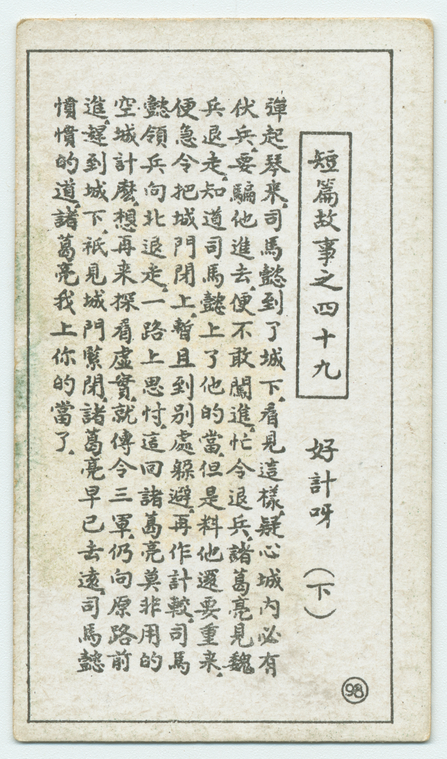 短篇故事之四十九
好計呀
（下）
彈起琴來。司馬懿到了城下。看見這樣。疑心城內必有
伏兵。要騙他進去。便不敢闖進。忙令退兵。諸葛亮見魏
兵退走。知道司馬懿上了他的當。但是料他還要重來。
便急令把城門閉上。暫且到別處躲避。再作計較。司馬
懿領兵向北退走。一路上思忖。這回諸葛亮莫非用的
空城計麼。想再來探看虛實。就傳令三軍。仍向原路前
進。趕到城下。祇見城門緊閉。諸葛亮早已去遠。司馬懿
憤憤的道。諸葛亮我上你的當了。
98